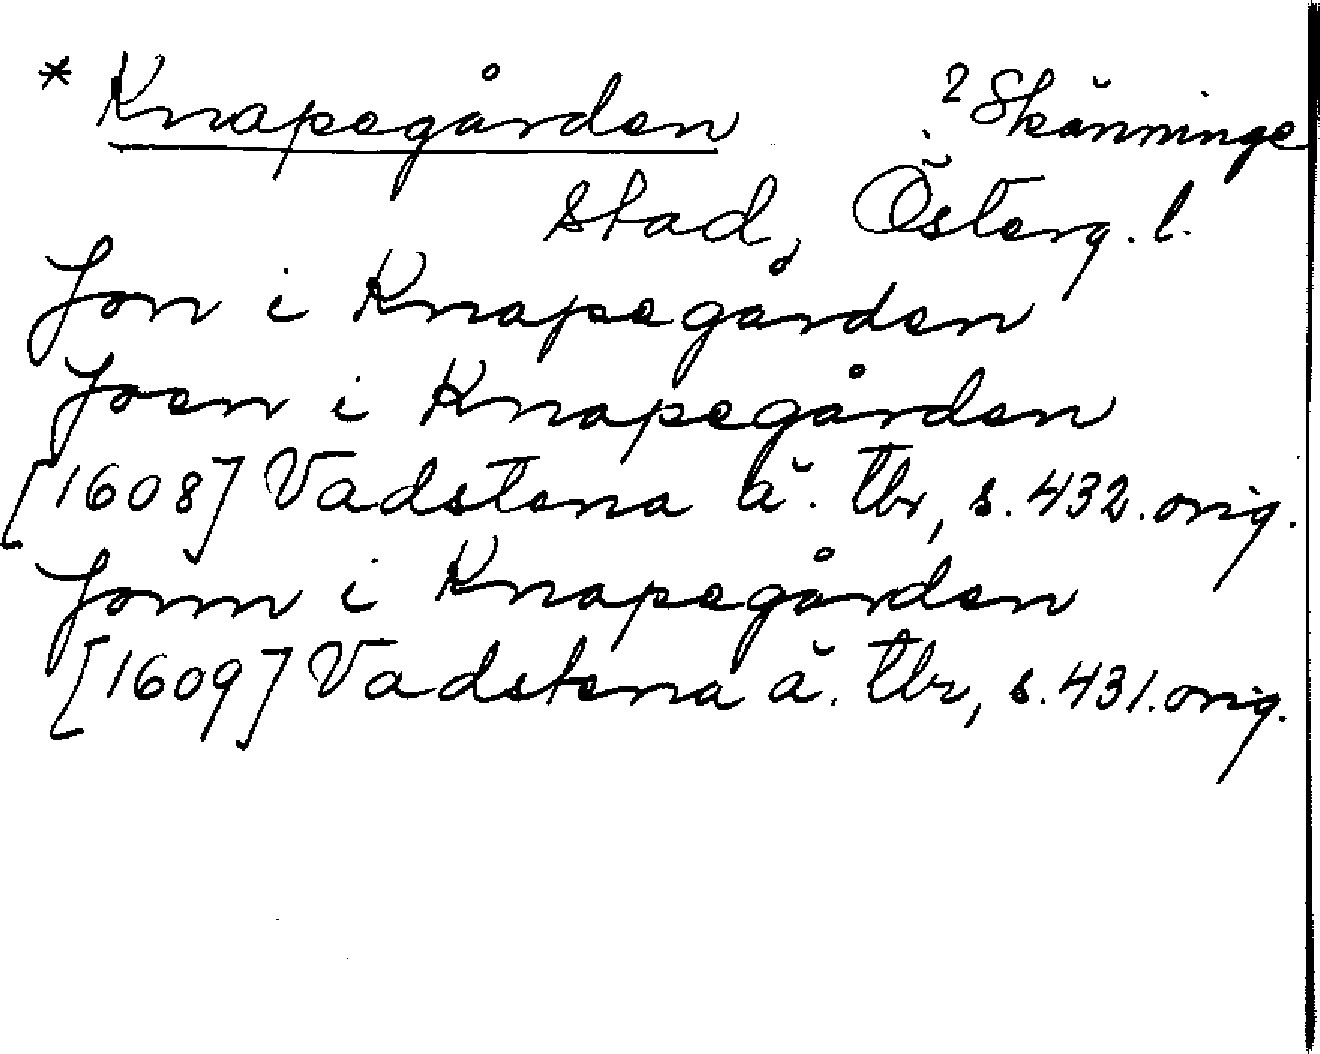 * Knapegården ? Skänninge
stad, Österg. l.
Jon i Knapegården
Joen i Knapegården
[1608] Vadstena ä. tbr, s. 432. orig.
Jonn i Knapegården
[1609] Vadstena ä. tbr, s. 431. orig.